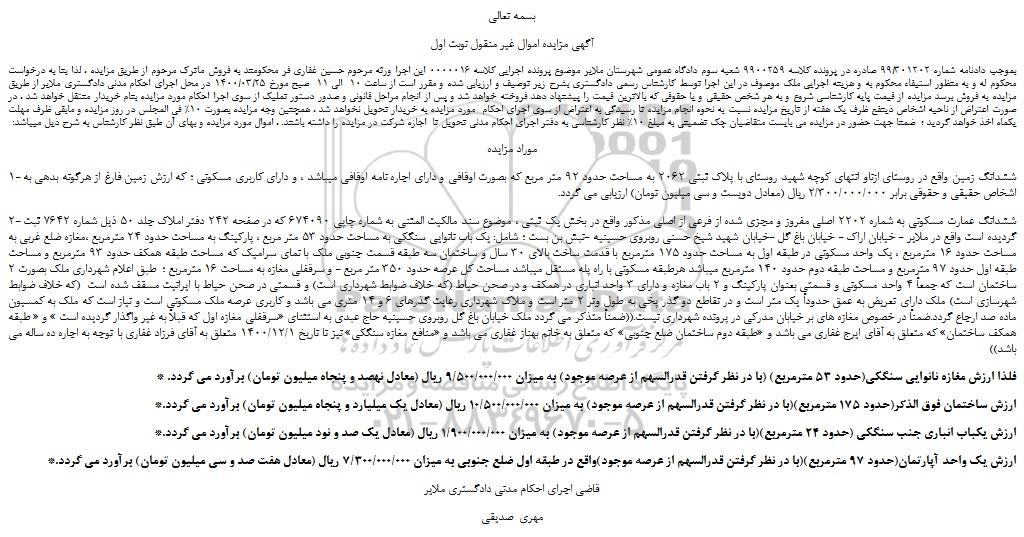 بسمه تعالی
آگهی مزایده اموال غیر منقول نوبت اول
بموجب دادنامه شماره 99/301202 صادره در پرونده کلاسه 9900259 شعبه سوم دادگاه عمومی شهرستان ملایر موضوع پرونده اجرایی کلاسه 0000016 این اجرا ورثه مرحوم حسین غفاری فر محکومند به فروش ماترک مرحوم از طریق مزایده ، لذا بنا به درخواست
محکوم له و به منظور استیفاء محکوم به و هزینه اجرایی ملک موصوف در این اجرا توسط کارشناس رسمی دادگستری بشرح زیر توصیف و ارزیابی شده و مقرر است از ساعت 10 الی 11 صبح مورخ 1400/03/25 در محل اجرای احکام مدنی دادگستری ملایر از طریق
مزایده به فروش برسد مزایده از قیمت پایه کارشناسی شروع و به هر شخص حقیقی و یا حقوقی که بالاترین قیمت را پیشنهاد دهد فروخته خواهد شد و پس از انجام مراحل قانونی و صدور دستور تملیک از سوی اجرا احکام مورد مزایده بنام خریدار منتقل خواهد شد . در
صورت اعتراض از ناحیه اشخاص ذینفع ظرف یک هفته از تاریخ مزایده نسبت به نحوه انجام مزایده تا رسیدگی به اعتراض از سوی اجرای احکام مورد مزایده به خریدار تحویل نخواهد شد . همچنین وجه مزایده بصورت 10% فی المجلس در روز مزایده و مابقی ظرف مهلت
یکماه اخذ خواهد گردید ؛ ضمنا جهت حضور در مزایده می بایست متقاضیان چک تضمینی به مبلغ 10% نظر کارشناسی به دفتر اجرای احکام مدنی تحویل تا اجازه شرکت در مزایده را داشته باشند . اموال مورد مزایده و بهای آن طبق نظر کارشناس به شرح ذیل میباشد:
موراد مزایده
1- ششدانگ زمین واقع در روستای ازناو انتهای کوچه شهید روستای با پلاک ثبتی 2062 به مساحت حدود 92 متر مربع که بصورت اوقافی و دارای اجاره نامه اوقافی میباشد ، و دارای کاربری مسکونی ؛ که ارزش زمین فارغ از هرگونه بدهی به
اشخاص حقیقی و حقوقی برابر 2/300/000/000 ریال (معادل دویست و سی میلیون تومان) ارزیابی می گردد.
2- ششدانگ عمارت مسکونی به شماره 2202 اصلی مفروز و مجزی شده از فرعی از اصلی مذکور واقع در بخش یک ثبتی ، موضوع سند مالکیت المثنی به شماره چاپی 674090 که در صفحه 242 دفتر املاک جلد 50 ذیل شماره 7642 ثبت
گردیده است واقع در ملایر - خیابان اراک - خیابان باغ گل -خیابان شهید شیخ حسنی روبروی حسینیه -نبش بن بست ؛ شامل: یک باب نانوایی سنگکی به مساحت حدود 53 متر مربع ، پارکینگ به مساحت حدود 24 مترمربع ،مغازه ضلع غربی به
مساحت حدود 16 مترمربع ، یک واحد مسکونی در طبقه اول به مساحت حدود 175 مترمربع با قدمت ساخت بالای 30 سال و ساختمان سه طبقه قسمت جنوبی ملک با نمای سرامیک که مساحت طبقه همکف حدود 93 مترمربع و مساحت
طبقه اول حدود 97 مترمربع و مساحت طبقه دوم حدود 140 مترمربع میباشد هرطبقه مسکونی با راه پله مستقل میباشد مساحت کل عرصه حدود 350 متر مربع - و سرقفلی مغازه به مساحت 16 مترمربع ؛ طبق اعلام شهرداری ملک بصورت 2
ساختمان است که جمعاً 4 واحد مسکونی و قسمتی بعنوان پارکینگ و 2 باب مغازه و دارای 3 واحد انباری در همکف و در صحن حیاط (که خلاف ضوابط شهرداری است) و قسمتی در صحن حیاط با ایرانیت مسقف شده است (که خلاف ضوابط
شهرسازی است) ملک دارای تعریض به عمق حدوداً یک متر است و در تقاطع دو گذر پخی به طول وتر 2 متر است و ملاک شهرداری رعایت گذرهای 6 و 14 متری می باشد و کاربری عرصه ملک مسکونی است و نیاز است که ملک به کمسیون
ماده صد ارجاع گردد.ضمناً در خصوص مغازه های بر خیابان مدرکی در پرونده شهرداری نیست.((ضمناً متذکر می گردد ملک خیابان باغ گل روبروی حسینیه حاج عبدی به استثنای «سرقفلی مغازه اول که قبلاً به غیر واگذار گردیده است » و «طبقه
همکف ساختمان» که متعلق به آقای ایرج غفاری می باشد و «طبقه دوم ساختمان ضلع جنوبی» که متعلق به خانم بهناز غفاری می باشد و «منافع مغازه سنگکی»نیز تا تاریخ 1400/12/1 متعلق به آقای فرزاد غفاری با توجه به اجاره ده ساله می
باشد))
فلذا ارزش مغازه نانوایی سنگکی(حدود 53 مترمربع) (با در نظر گرفتن قدرالسهم از عرصه موجود) به میزان 9/500/000/000 ریال (معادل نهصد و پنجاه میلیون تومان) برآورد می گردد. *
ارزش ساختمان فوق الذکر(حدود 175 مترمربع)(با در نظر گرفتن قدرالسهم از عرصه موجود) به میزان 10/500/000/000 ریال (معادل یک میلیارد و پنجاه میلیون تومان) برآورد می گردد.*
ارزش یکباب انباری جنب سنگکی (حدود 24 مترمربع)(با در نظر گرفتن قدرالسهم از عرصه موجود) به میزان 1/900/000/000 ریال (معادل یک صد و نود میلیون تومان) برآورد می گردد.*
ارزش یک واحد آپارتمان(حدود 97 مترمربع)(با در نظر گرفتن قدرالسهم از عرصه موجود)واقع در طبقه اول ضلع جنوبی به میزان 7/300/000/000 ریال (معادل هفت صد و سی میلیون تومان) برآورد می گردد.*
قاضی اجرای احکام مدنی دادگستری ملایر
مهری صدیقی
پایگاه اطلاع رسانی مناقصه و مزایده
۰۲۱-۸۸۳۴۹۶۷۰-۵